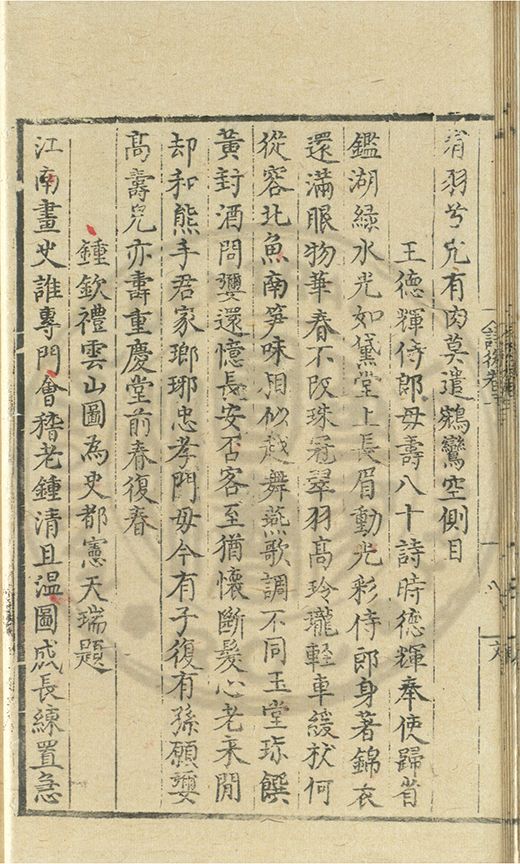 有肉莫遣鵷鸞空側目
王德輝侍郎母壽八十詩時德輝奉使歸省
鑑湖綠水光如黛堂上長眉動光彩侍郎身著錦衣
還滿眼物華春不改珠冠翠羽髙玲瓏軽車緩狀何
從容北魚南笋味相似越舞燕歌調不同玉堂珎饌
黃封酒問嬰還憶長安否客至猶懷斷髮心老来閒
却和熊手君家瑯琊忠孝門母今有子復有孫願嬰
髙壽兒亦壽重慶堂前春復春
鍾欽禮雲山圖為史都憲天瑞題
江南畫史誰專門會稽老鍾清且温圖成長練置急